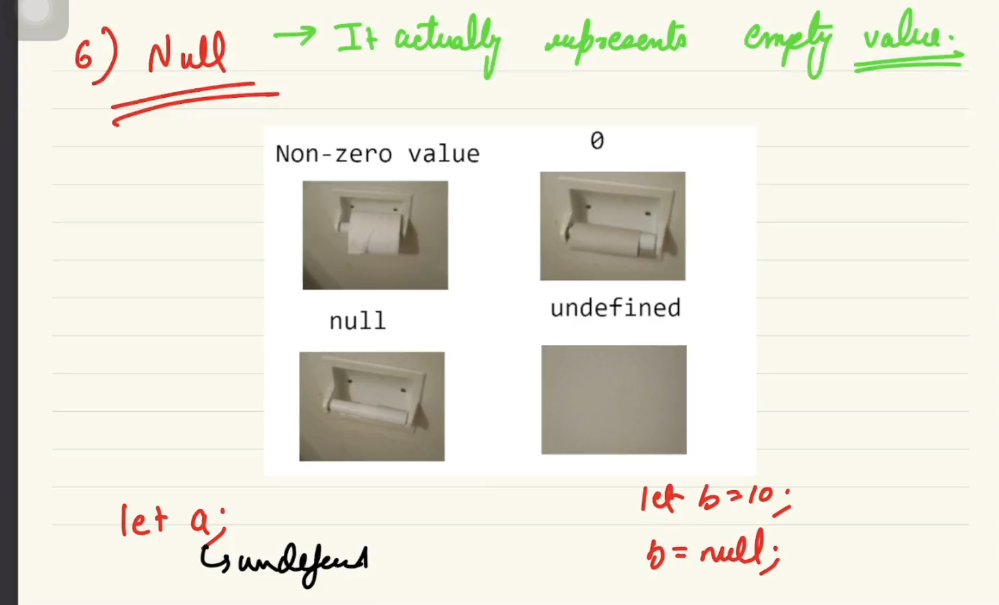 6) Null → It actually represents empty value.
Non-zero value
0
null
undefined
let a;
↳ undefined
let b=10;
b = null;